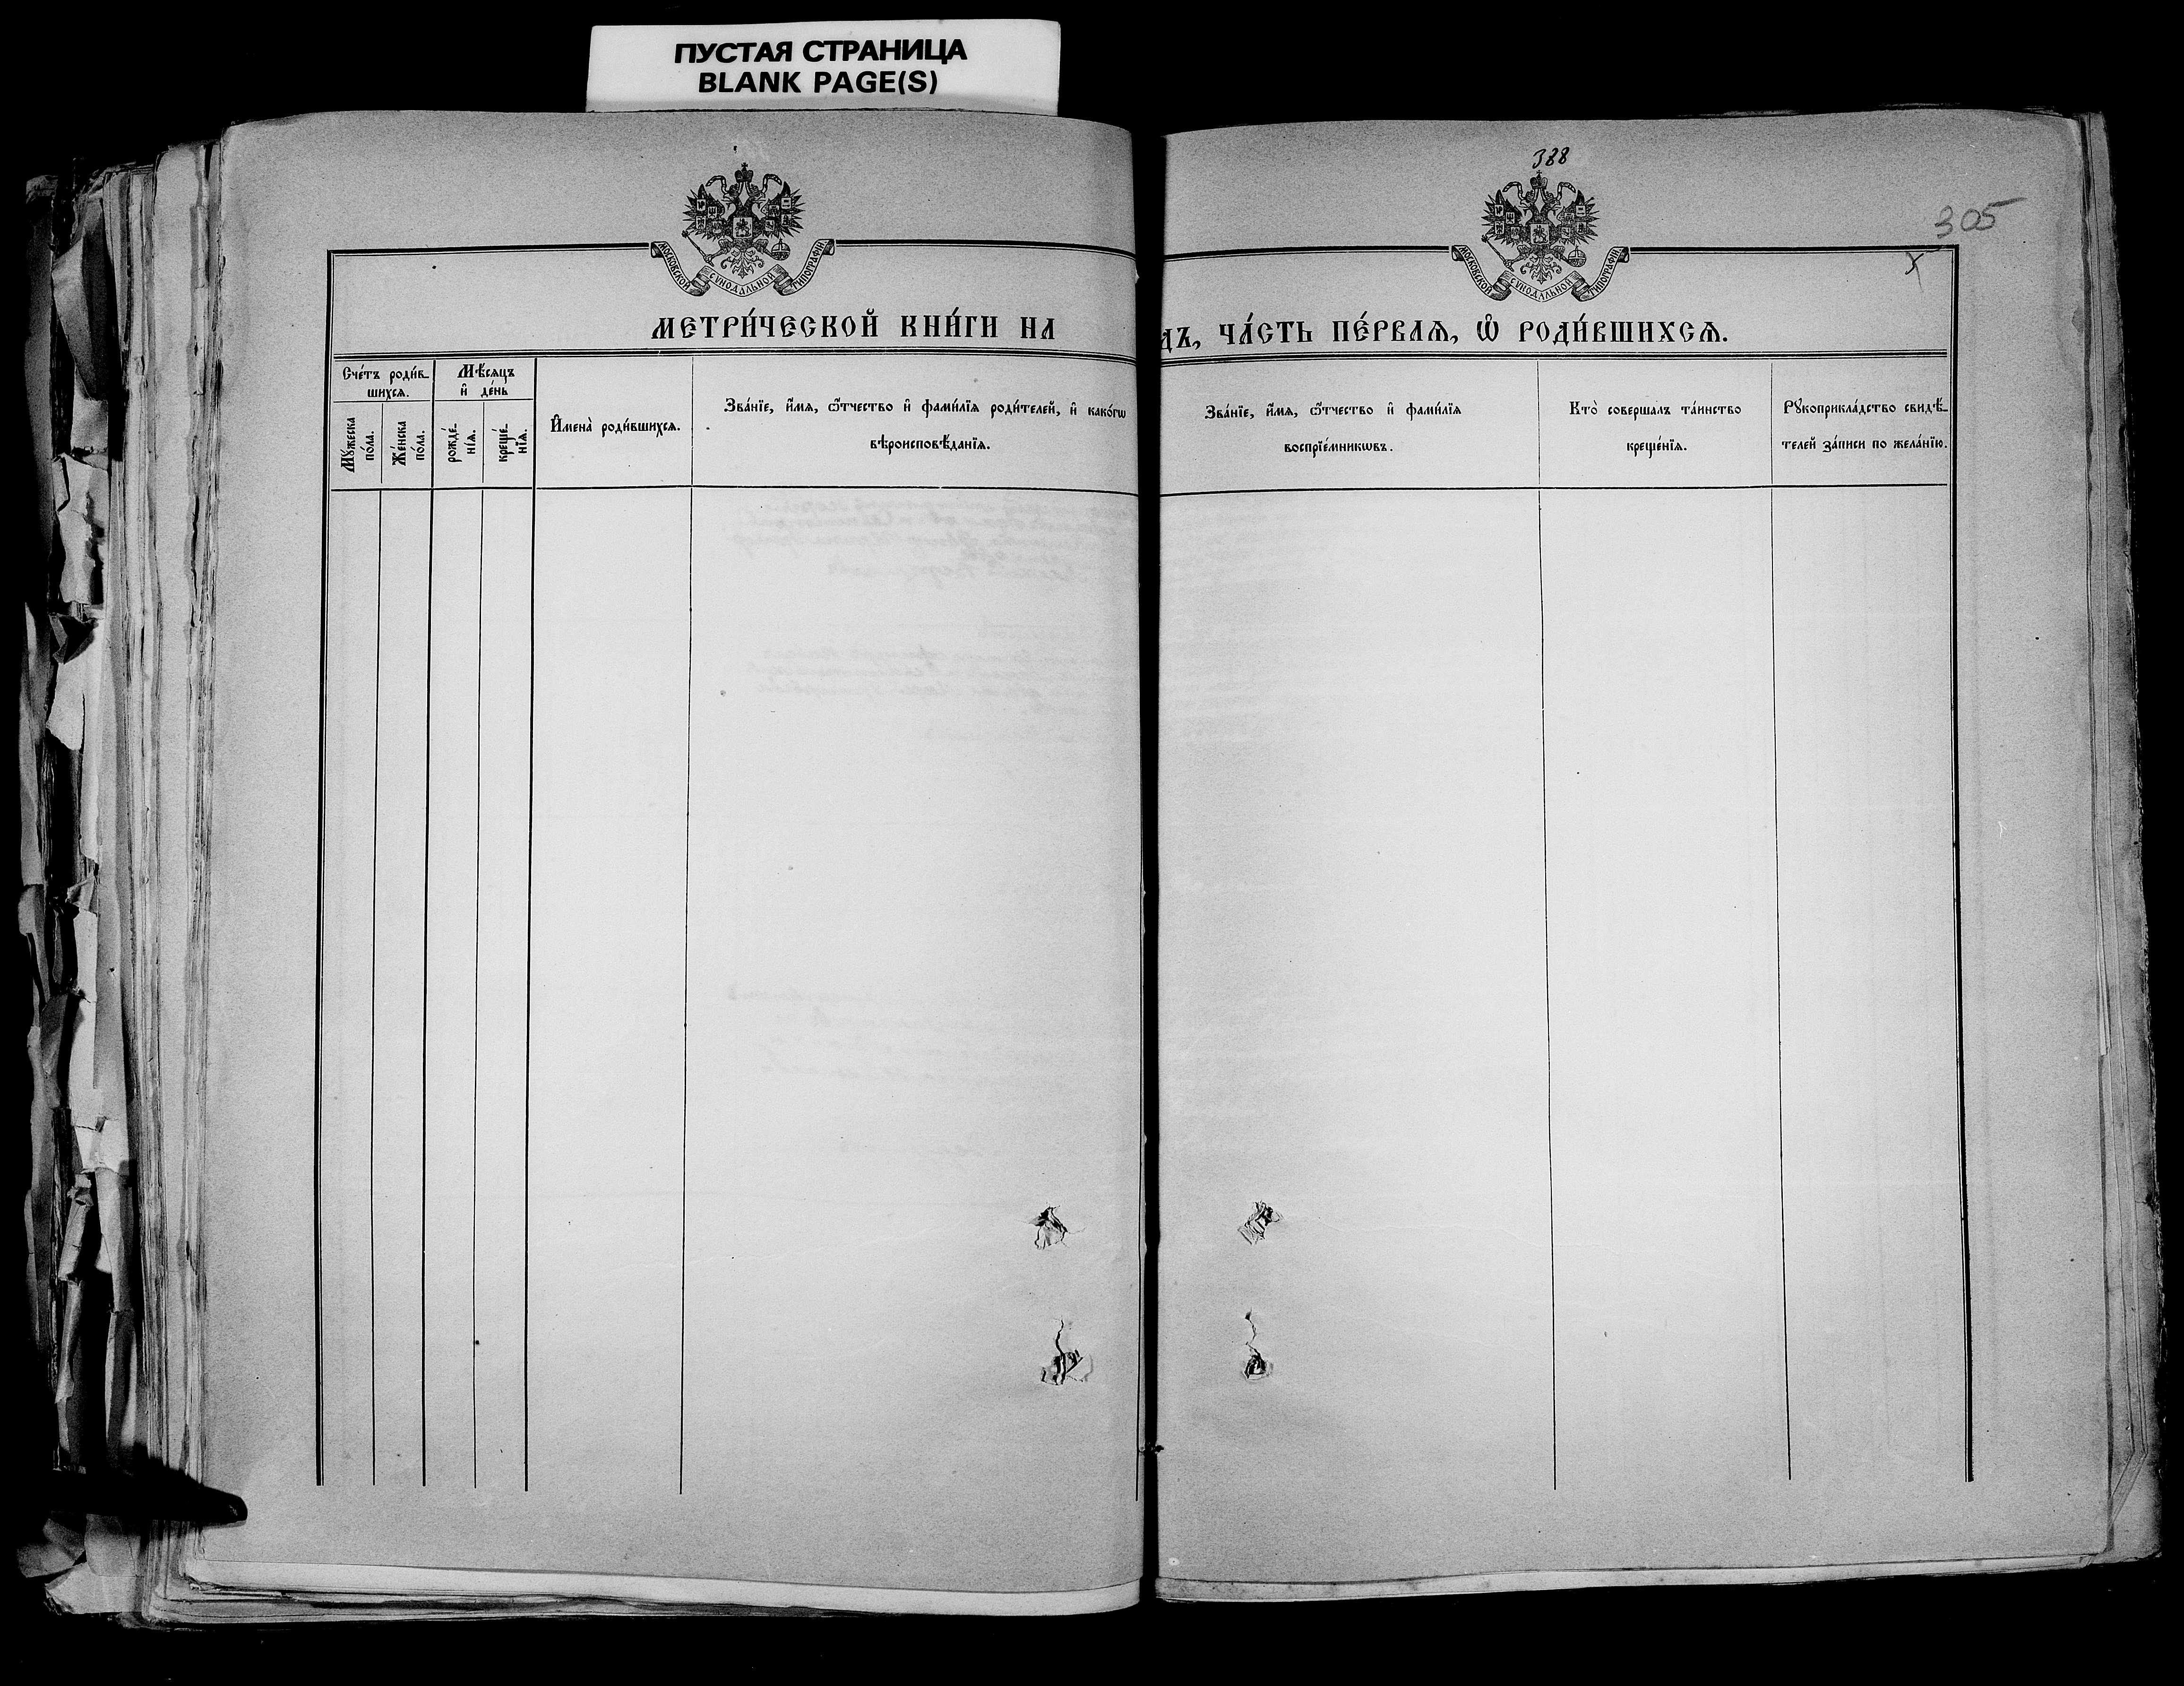 ПУСТАЯ СТРАНИЦА
BLANK PAGE(S)
МОСКОВСКОЙ СѴНОДАЛЬНОЙ ТИПОГРАФІИ
МЕТРИ́ЧЕСКОЙ КНИ́ГИ НА
Сче́тъ роди́в-
шихсѧ.
Мѣ́сѧцъ
и҆ де́нь
Мꙋ́жеска
по́ла.
Же́нска
по́ла.
рожде́-
нїѧ.
креще́-
нїѧ.
И҆мена̀ роди́вшихсѧ.
Зва́нїе, и҆́мѧ, ѻ҆́тчество и҆ фами́лїѧ роди́телей, и҆ како́гѡ
вѣроисповѣ́данїѧ.
388
305
х
МОСКОВСКОЙ СѴНОДАЛЬНОЙ ТИПОГРАФІИ
дъ, ЧА́СТЬ ПЕ́РВАѦ, Ѡ҆ РОДИ́ВШИХСѦ.
Зва́нїе, и҆́мѧ, ѻ҆́тчество и҆ фами́лїѧ
воспрїе́мникѡвъ.
Кто̀ совершалъ та́инство
креще́нїѧ.
Рꙋкоприкла́дство свидѣ́-
телей за́писи по жела́нїю.